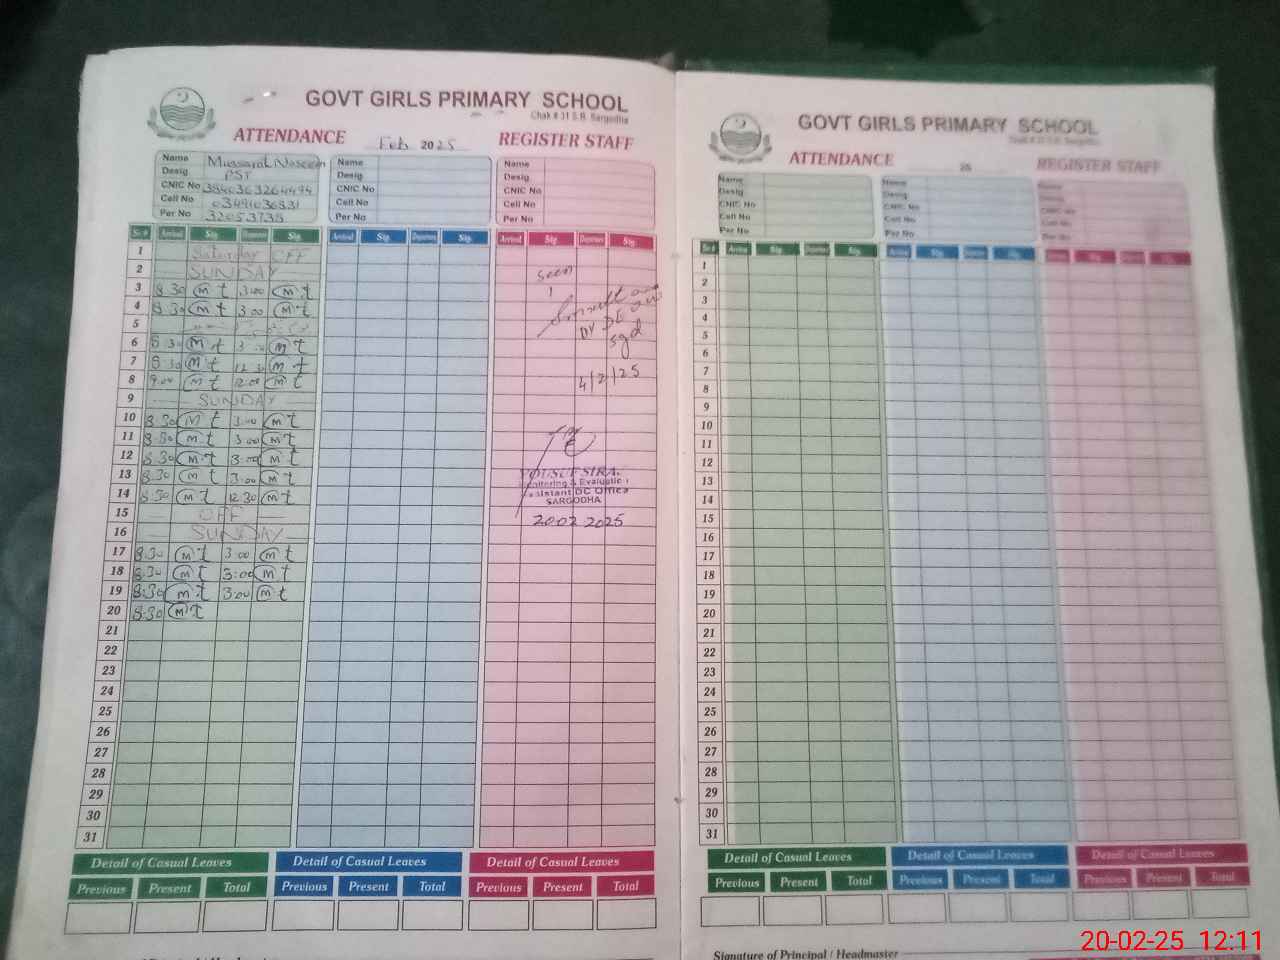 GOVT GIRLS PRIMARY SCHOOL
Chak # 31 S.B. Sargodha
ATTENDANCE Feb 2025 REGISTER STAFF
Name Mussarat Nasreen
Desig PST
CNIC No
Cell No
Per No
Name
Desig
CNIC No
Cell No
Per No
Name
Desig
CNIC No
Cell No
Per No
Sr.# Arrival Sig. Departure Sig. Arrival Sig. Departure Sig. Arrival Sig. Departure Sig.
1 Saturday OFF
2 SUNDAY
3 8.30 m t 3.00 m t
4 8.30 m t 3.00 m t
5
6 8.30 m t 3.00 m t
7 8.30 m t 12.30 m t
8 9.00 m t 12.00 m t
9 SUNDAY
10 8.30 m t 3.00 m t
11 8.30 m t 3.00 m t
12 8.30 m t 3.00 m t
13 8.30 m t 3.00 m t
14 8.30 m t 12.30 m t
15 OFF
16 SUNDAY
17 8.30 m t 3.00 m t
18 8.30 m t 3:00 m t
19 8.30 m t 3.00 m t
20 8.30 m t
21
22
23
24
25
26
27
28
29
30
31
seen
sgd
4/2/25
YOUSUF SIRA
Monitoring & Evaluation
Assistant DC Office
SARGODHA
20.02.2025
Detail of Casual Leaves Detail of Casual Leaves Detail of Casual Leaves
Previous Present Total Previous Present Total Previous Present Total
GOVT GIRLS PRIMARY SCHOOL
Chak # 31 S.B. Sargodha
ATTENDANCE 25 REGISTER STAFF
Name
Desig
CNIC No
Cell No
Per No
Name
Desig
CNIC No
Cell No
Per No
Name
Desig
CNIC No
Cell No
Per No
Sr.# Arrival Sig. Departure Sig. Arrival Sig. Departure Sig. Arrival Sig. Departure Sig.
1
2
3
4
5
6
7
8
9
10
11
12
13
14
15
16
17
18
19
20
21
22
23
24
25
26
27
28
29
30
31
Detail of Casual Leaves Detail of Casual Leaves Detail of Casual Leaves
Previous Present Total Previous Present Total Previous Present Total
Signature of Principal / Headmaster
20-02-25 12:11